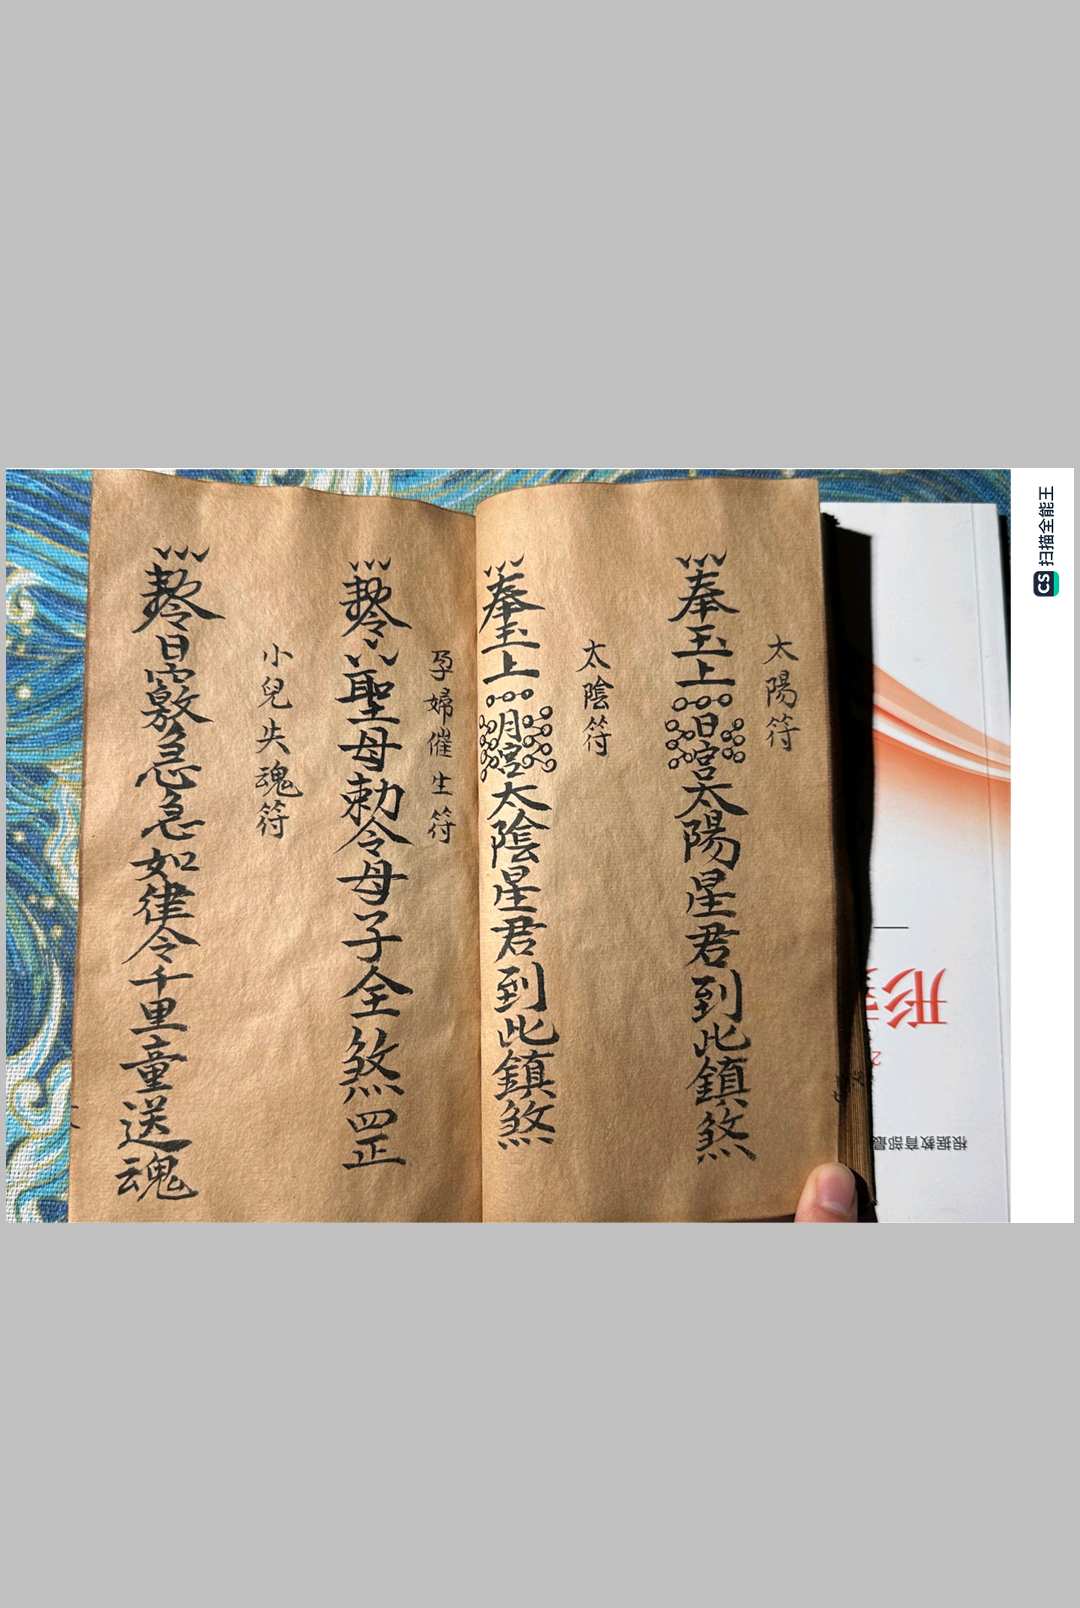 太陽符
奉玉上日宮太陽星君到此鎮煞
太陰符
奉玉上月宮太陰星君到此鎮煞
孕婦催生符
聖母勅令母子全煞罡
小兒失魂符
急急如律令千里童送魂
CS 扫描全能王
形
根据教育部最